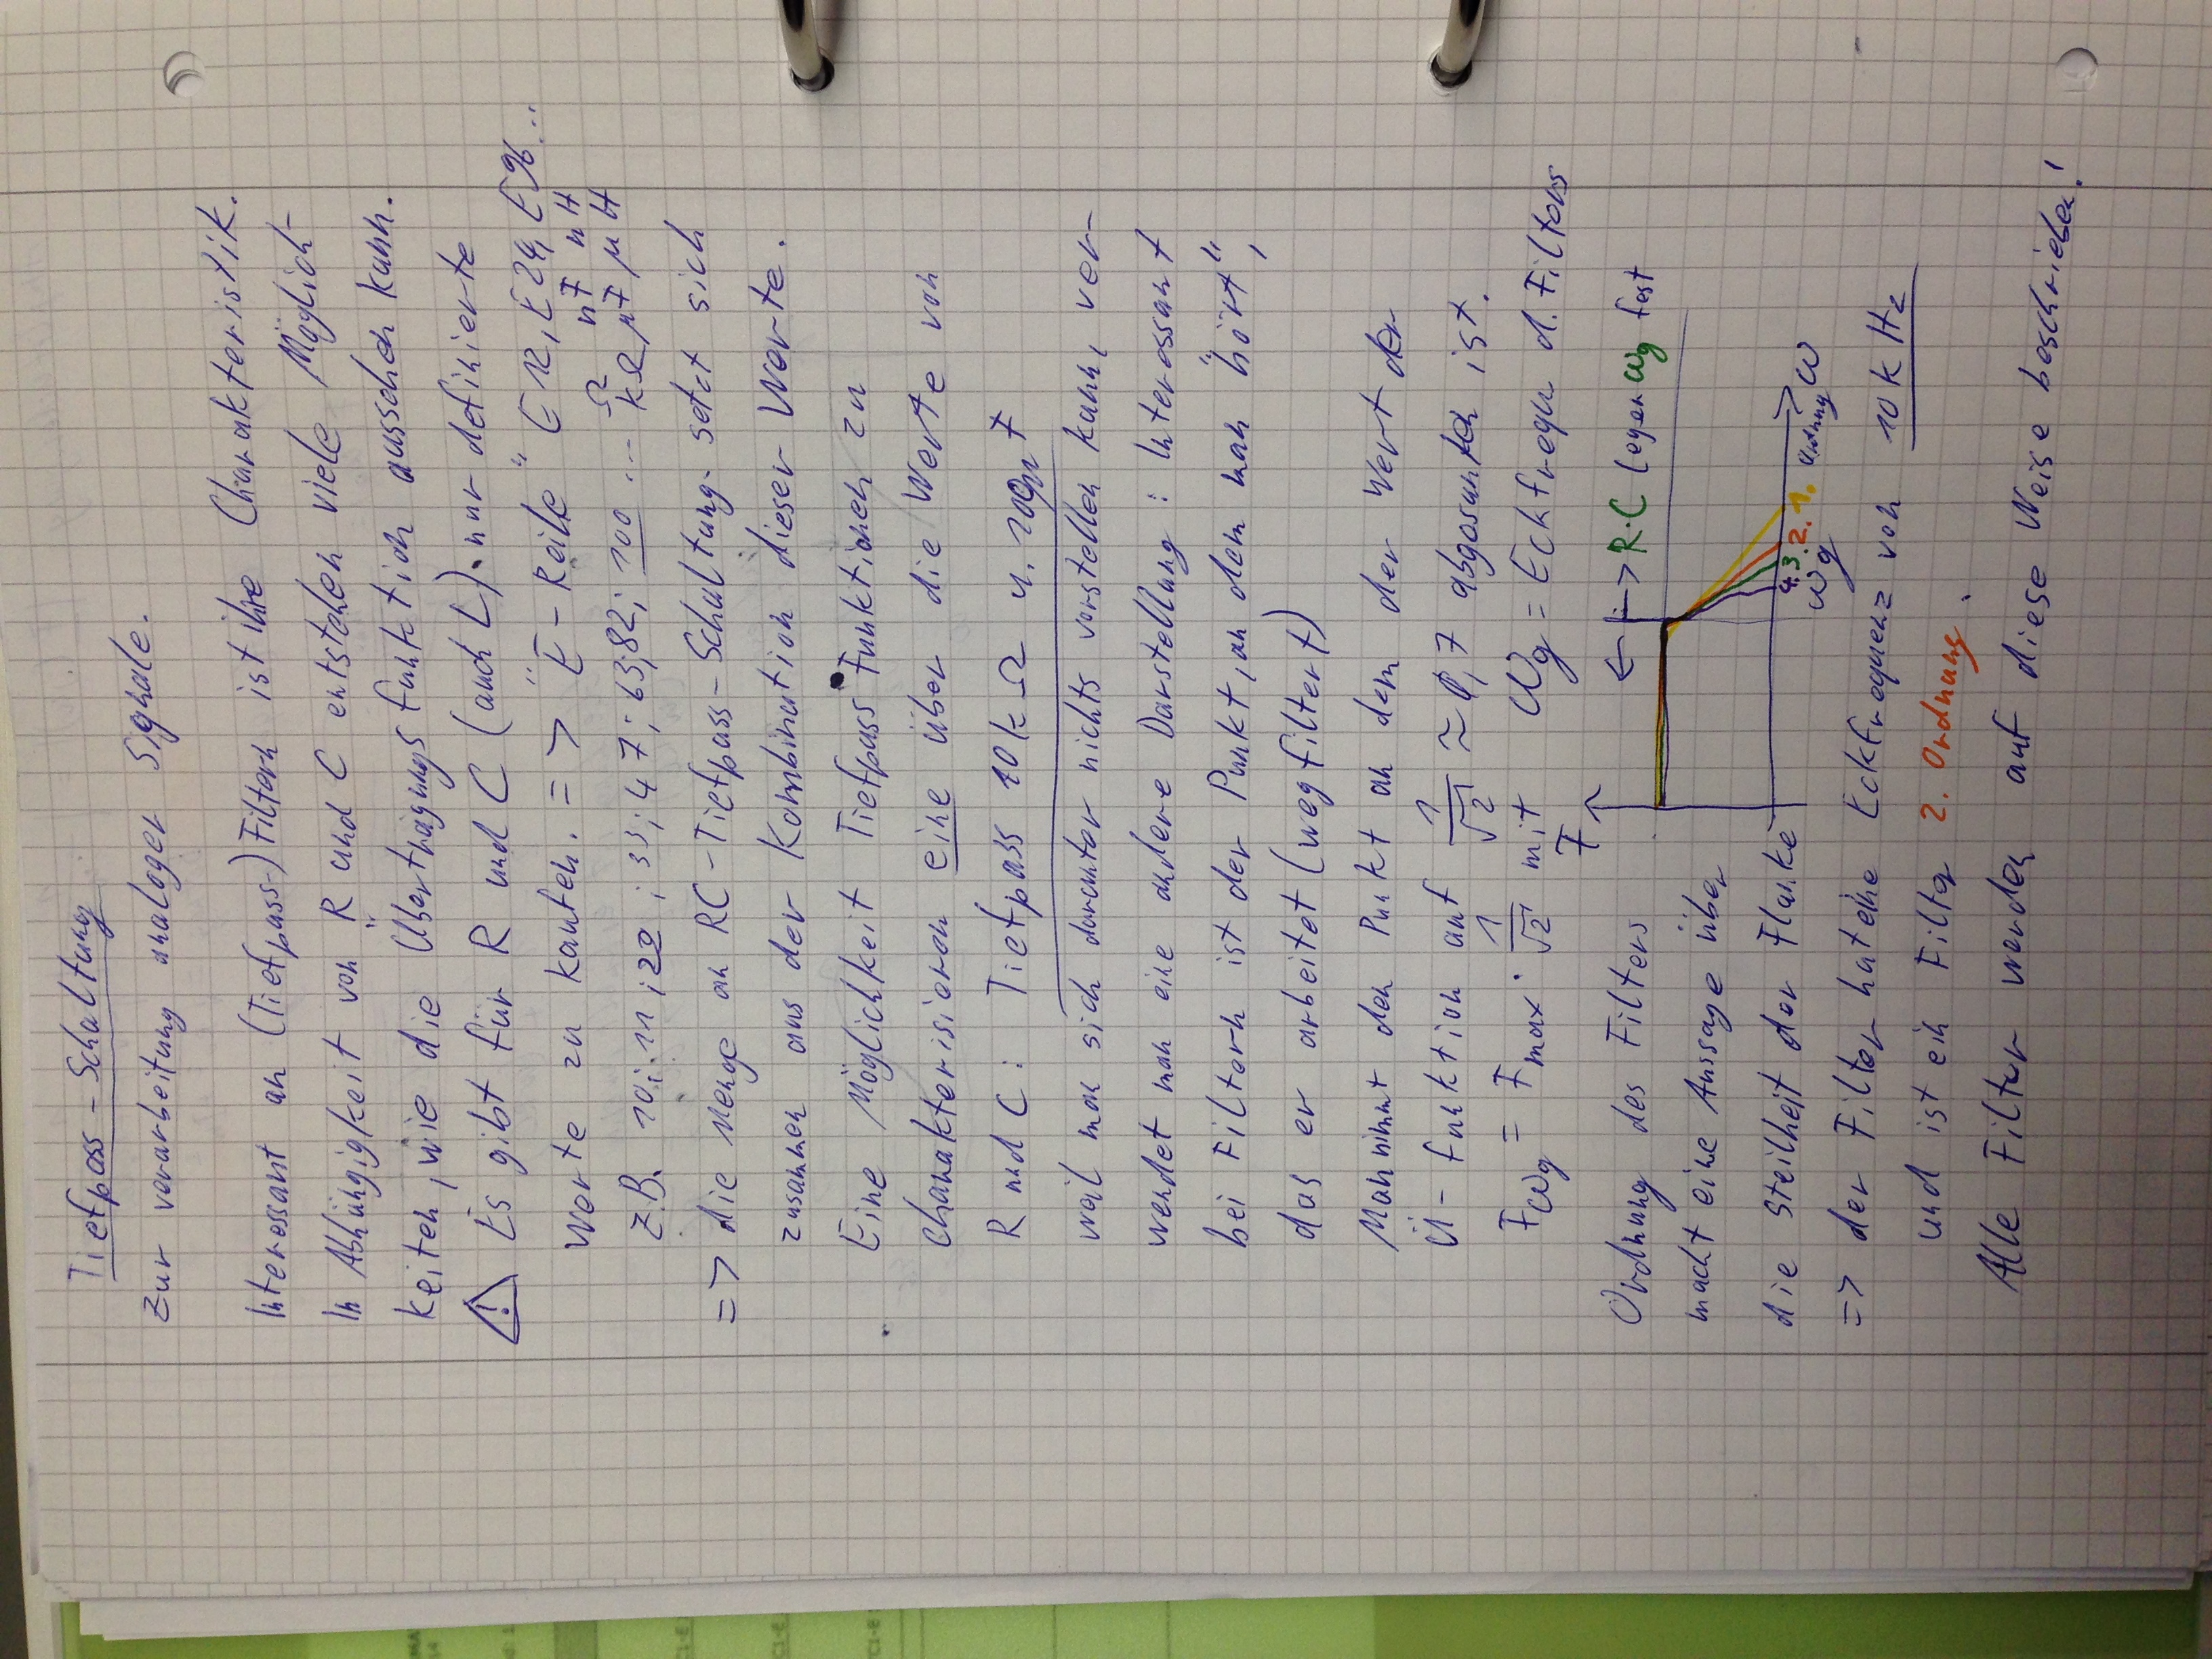 Tiefpass-Schaltung
zur verarbeitung analoger Signale.
Interessant an (Tiefpass-)Filtern ist ihre Charakteristik.
In Abhängigkeit von R und C entstehen viele Möglich-
keiten, wie die Übertragungsfunktion aussehen kann.
! Es gibt für R und C (auch L) nur definierte
Werte zu kaufen. => "E-Reihe" E12, E24, E96...
Ω nF nH
z.B. 10; 11; 22; 33; 47; 63; 82; 100 ... kΩ µF µH
=> die Menge an RC-Tiefpass-Schaltung setzt sich
zusammen aus der Kombination dieser Werte.
Eine Möglichkeit Tiefpass Funktionen zu
charakterisieren eine über die Werte von
R und C: Tiefpass 10kΩ u. F
weil man sich darunter nichts vorstellen kann, ver-
wendet man eine andere Darstellung: Interessant
bei Filtern ist der Punkt, an dem man "hört",
das er arbeitet (wegfiltert)
Man nimmt den Punkt an dem der Wert der
Ü-funktion auf 1/√2 ≈ 0,7 abgesunken ist.
Fωg = Fmax · 1/√2 mit ωg = Eckfrequ. d. Filters
F
Ordnung des Filters
← → R·C legen ωg fest
macht eine Aussage über
die Steilheit der Flanke
4. 3. 2. 1. Ordnung ω
ωg
=> der Filter hat eine Eckfrequenz von 10kHz
und ist ein Filter 2. Ordnung.
Alle Filter werden auf diese Weise beschrieben!